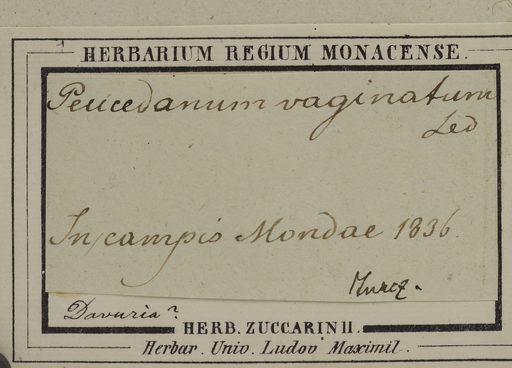 HERBARIUM REGIUM MONACENSE.
Peucedanum vaginatum
Led
In campis Mondae 1836.
Turcz.
Davuria?
HERB. ZUCCARINII.
Herbar. Univ. Ludov. Maximil.